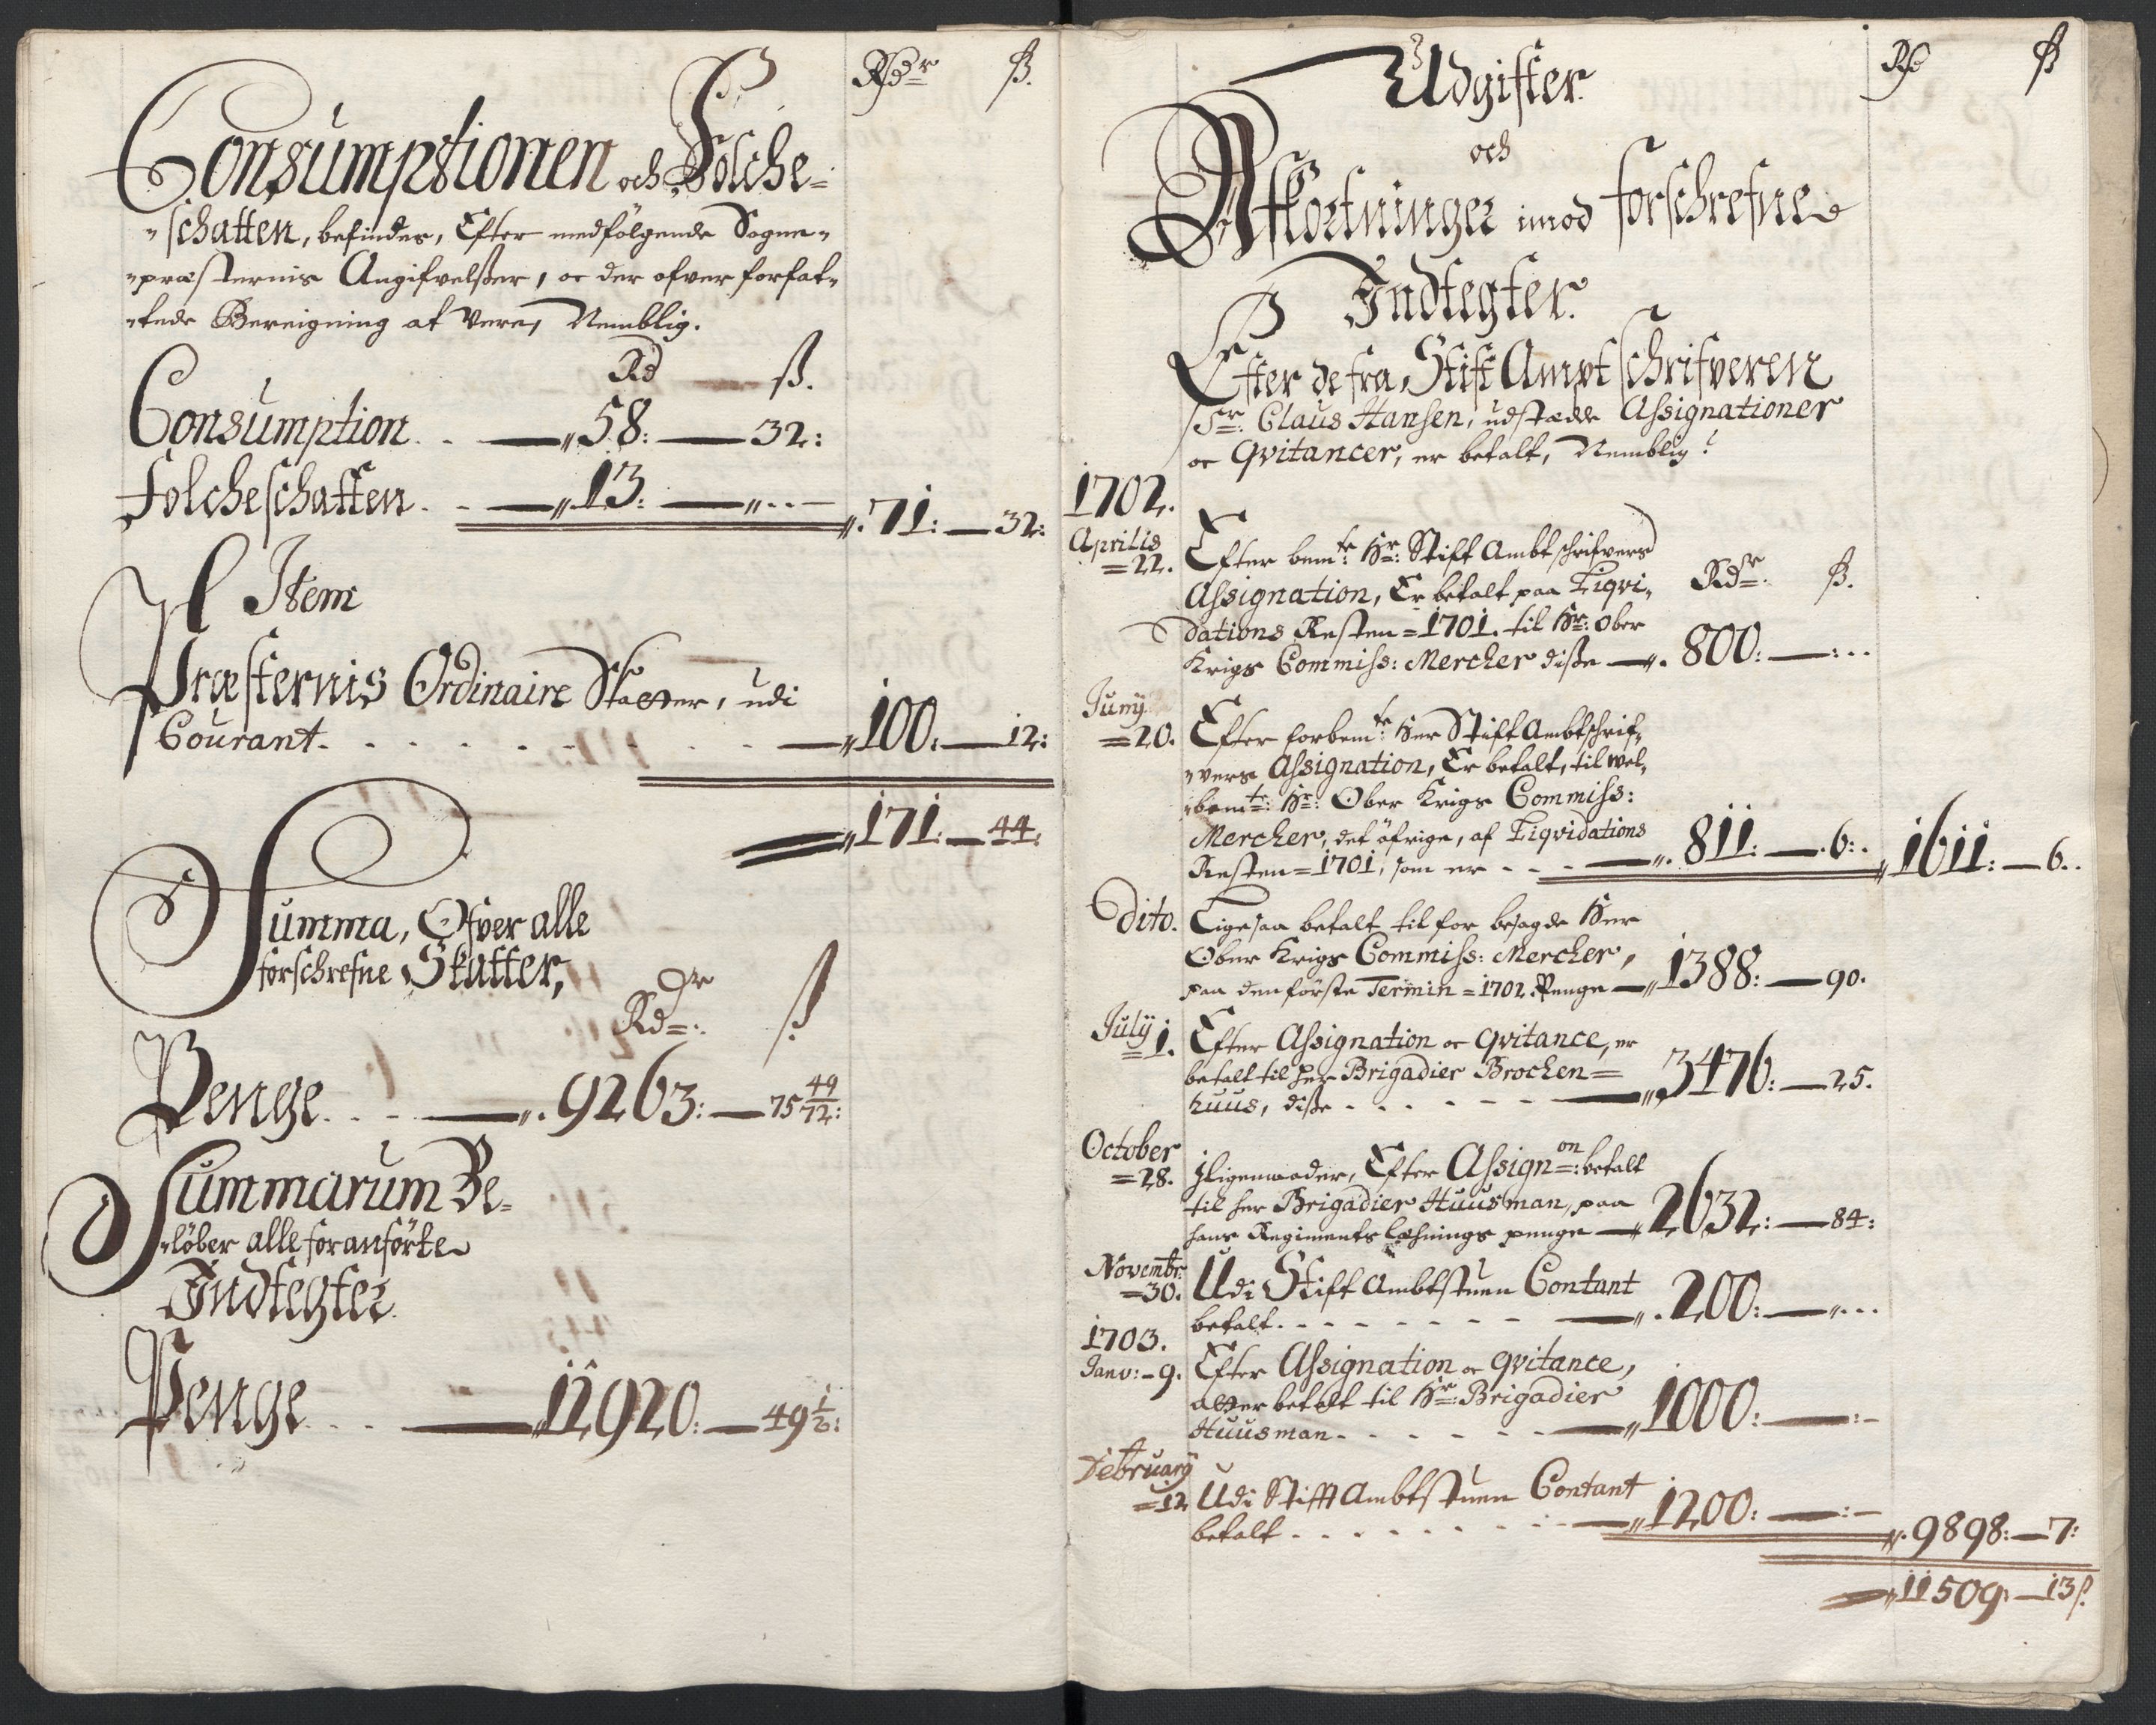 Rdr ß.
Consumptionen och Folche-
schatten, befindes, Efter medfölgende Sogne-
præsternis Angifvelßer, oc der ofver forfat-
tede Bereigning at Vere, Nemblig.
Rd ß.
Consumption . . — 58: — 32:
Folcheschatten . . — 13: — „ . . — 71: — 32:
Item
Præsternis Ordinaire Skatter, udi
Courant . . . . . . . — 100: — 12:
171: — 44:
Summa, Ofver alle
forschrefne Skatter,
Rdr: ß
Penge . . . — 9263: — 75 49/72:
Summarum Be-
löber alle foranförte
Indtegter
Penge . . . — 12920: — 49 1/2:
Rd ß
Udgifter
och
Afkortninger imod forschrefne
Indtegter.
Efter de fra Stift Ampt schrifveren
Sr: Claus Hansen, udstædde Assignationer
oc Qvitancer, er betalt, Nemblig:
1702.
Aprilis =22. Efter bemte: Hr: Stift Ambtschrifvers
Assignation, Er betalt paa Liqvi- Rdr: ß.
dations Resten =1701. til Hr: Ober
Krigs Commiss: Mercher diße — 800: — : . .
Juny =20. Efter forbemte: Her Stift Ambtschrif-
vers Assignation, Er betalt, til wel-
bemte: Hr: Ober Krigs Commiss:
Mercher, det öfrige, af Liqvidations
Resten =1701, som er . . . — 811: — 6: . 1611: — 6. .
Dito. Ligesaa betalt til for besagde Her
Ober Krigs Commiss: Mercher,
paa den förste Termin =1702 Penge — 1388: — 90.
July =1. Efter Assignation oc qvitance, er
betalt til her Brigadier Brochen=
huus, diße . . . . . . — 3476: — 25.
October =28. Iligemaader, Efter Assignon: betalt
til her Brigadier Huusman, paa
hans Regiments læhnings penge — 2632: — 84:
Novembr: =30. Udi Stift Ambtstuen Contant
betalt . . . . . . . . — 200: — „ . . .
1703.
Janv: =9. Efter Assignation oc qvitance,
atter betalt til Hr: Brigadier
Huusman . . . . . . — 1000: — : –
February =12 Udi Stifft Ambtstuen Contant
betalt . . . . . . . . — 1200: — : – 9898: — 7:
11509 — 13 ß.